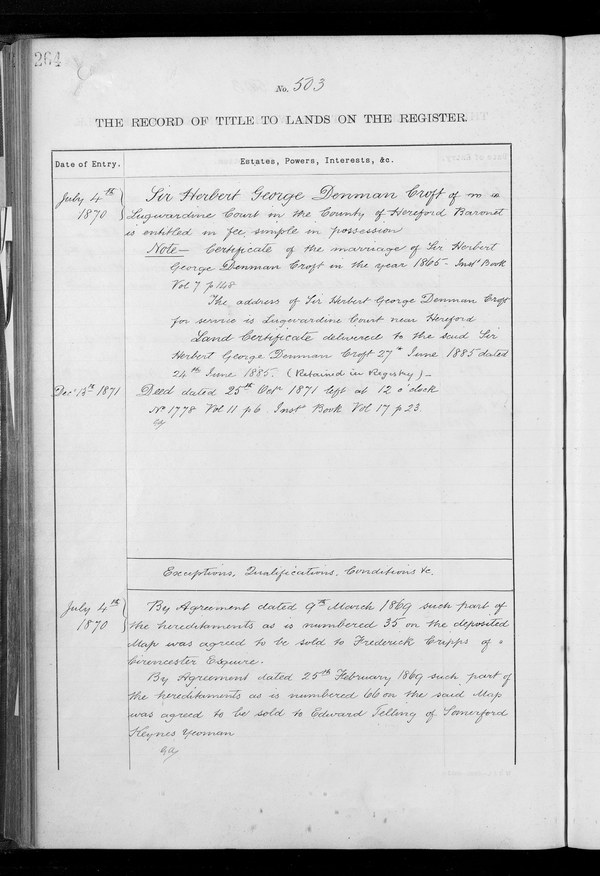 264
No. 503
THE RECORD OF TITLE TO LANDS ON THE REGISTER.
Date of Entry. Estates, Powers, Interests, &c.
July 4th 1870 Sir Herbert George Denman Croft of
Lugwardine Court in the County of Hereford Baronet
is entitled in fee simple in possession
Note — Certificate of the marriage of Sir Herbert
George Denman Croft in the year 1865 - Inst Book
Vol 7 p 148
The address of Sir Herbert George Denman Croft
for service is Lugwardine Court near Hereford
Land Certificate delivered to the said Sir
Herbert George Denman Croft 27th June 1885 dated
24th June 1885. (Retained in Registry) —
Decr 1871 Deed dated 25th Octr 1871 left at 12 o'clock
No 1778 Vol 11 p 6. Inst Book Vol 17 p 23.
Exceptions, Qualifications, Conditions &c.
July 4th 1870 By Agreement dated 9th March 1869 such part of
the hereditaments as is numbered 35 on the deposited
Map was agreed to be sold to Frederick Cripps of
Cirencester Esquire.
By Agreement dated 25th February 1869 such part of
the hereditaments as is numbered 66 on the said Map
was agreed to be sold to Edward Telling of Somerford
Keynes Yeoman